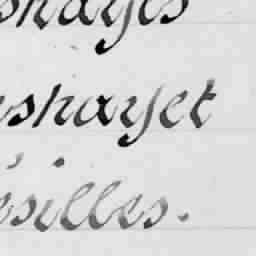 shayes
eshayet
ésilles.